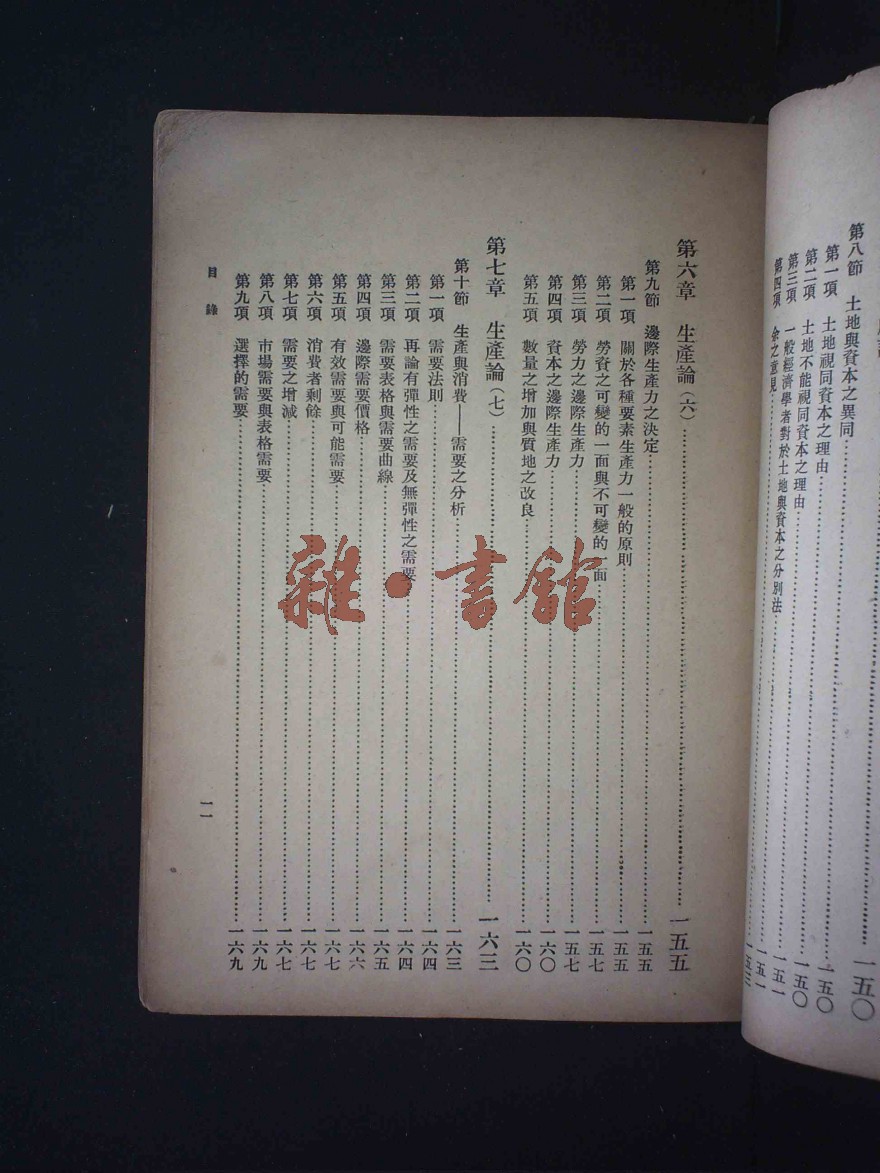 第八節　土地與資本之異同……一五〇
第一項　土地視同資本之理由……一五〇
第二項　土地不能視同資本之理由……一五〇
第三項　一般經濟學者對於土地與資本之分別法……一五一
第四項　余之意見……一五一
第六章　生產論（六）……一五五
第九節　邊際生產力之決定……一五五
第一項　關於各種要素生產力一般的原則……一五五
第二項　勞資之可變的一面與不可變的一面……一五七
第三項　勞力之邊際生產力……一五七
第四項　資本之邊際生產力……一六〇
第五項　數量之增加與質地之改良……一六〇
第七章　生產論（七）……一六三
第十節　生產與消費——需要之分析……一六三
第一項　需要法則……一六四
第二項　再論有彈性之需要及無彈性之需要……一六四
第三項　需要表格與需要曲線……一六五
第四項　邊際需要價格……一六六
第五項　有效需要與可能需要……一六七
第六項　消費者剩餘……一六七
第七項　需要之增減……一六七
第八項　市場需要與表格需要……一六九
第九項　選擇的需要……一六九
目錄
一一
雜·書館